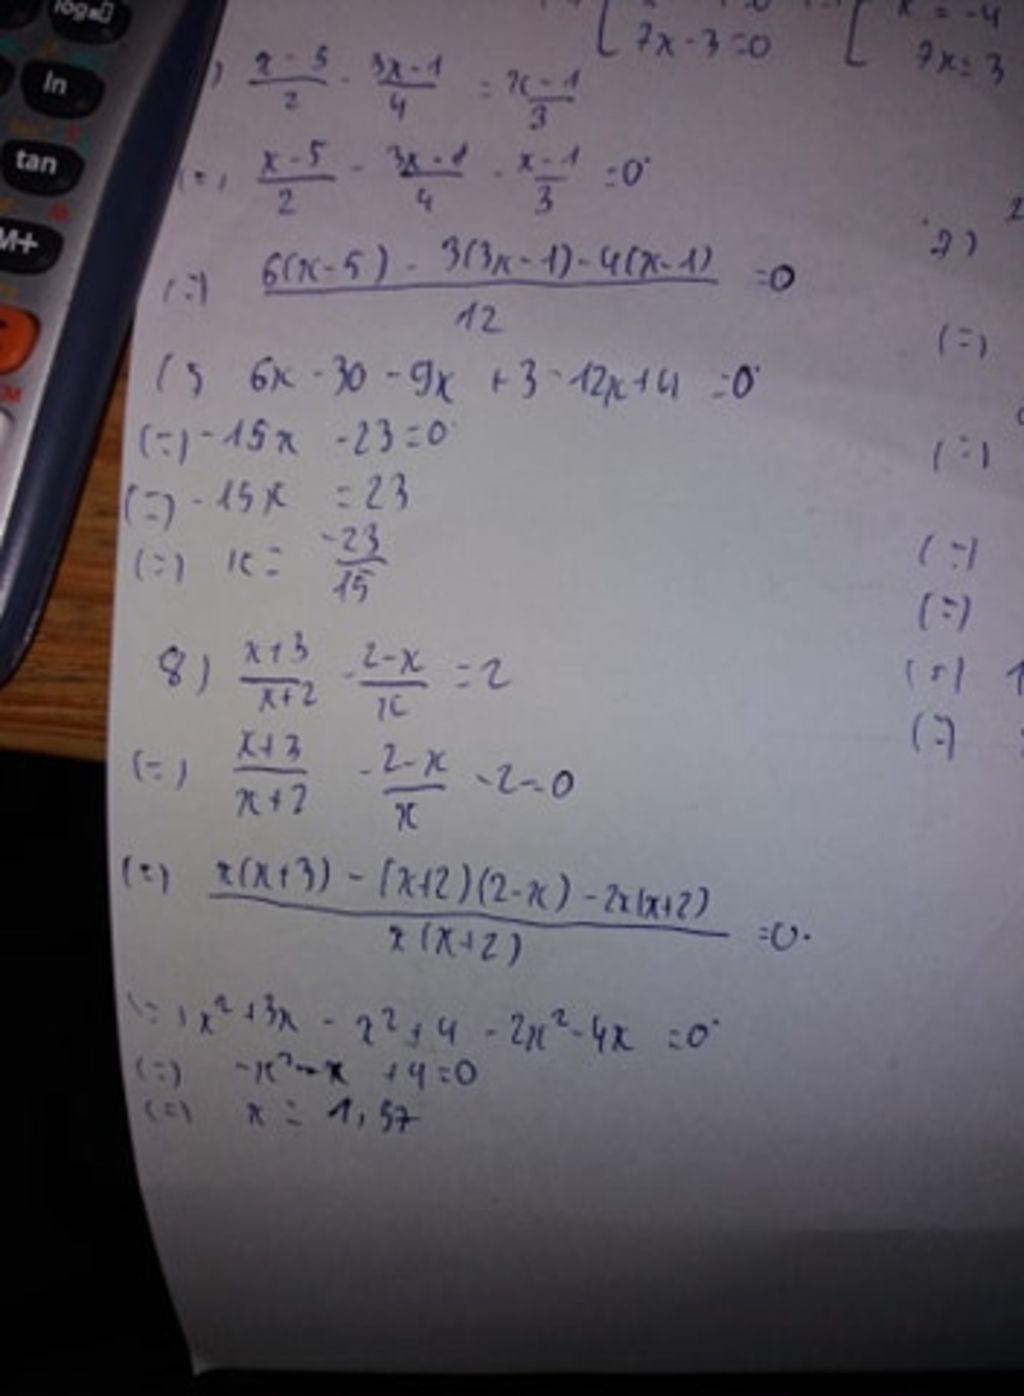 log
ln
tan
M+
7x-3=0
x = -4
7x=3
) \frac{x-5}{2} - \frac{3x-1}{4} = \frac{x-1}{3}
(=) \frac{x-5}{2} - \frac{3x-1}{4} - \frac{x-1}{3} =0
(=) \frac{6(x-5) - 3(3x-1)-4(x-1)}{12} =0
(=) 6x-30-9x +3-12x+4 =0
(=) -15x -23=0
(=) -15x =23
(=) x= \frac{-23}{15}
8) \frac{x+3}{x+2} - \frac{2-x}{x} =2
(=) \frac{x+3}{x+2} - \frac{2-x}{x} -2=0
(=) \frac{x(x+3) - (x+2)(2-x) -2x(x+2)}{x(x+2)} =0
(=) x²+3x - x²+4 -2x²-4x =0
(=) -x²-x +4=0
(=) x = 1,57
2)
(=)
(=)
(=)
(=)
(=)
(=)